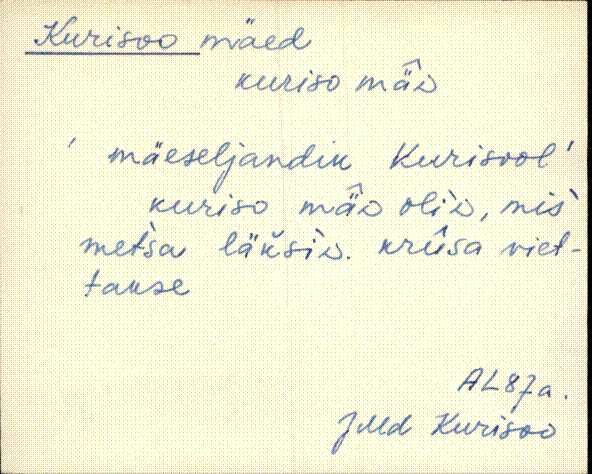 Kurisoo mäed
kuriso mä̂D
' mäeseljandik Kurisool '
kuriso mä̂D oli̬D, mis
metsa läksi̬D. krûsa viet-
takse
AL 87a.
JMd Kurisoo